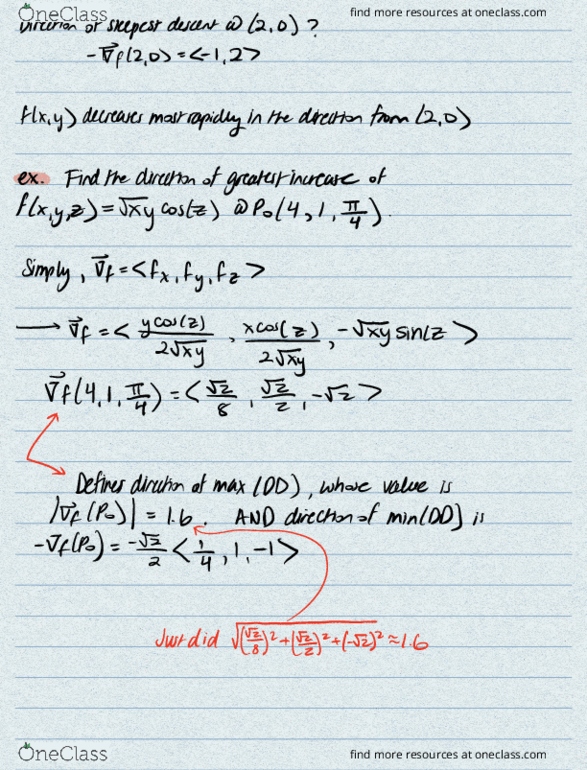 OneClass
find more resources at oneclass.com
Direction of steepest descent @ (2,0) ?
-∇⃗f(2,0) = <-1,2>
f(x,y) decreases most rapidly in the direction from (2,0)
ex. Find the direction of greatest increase of
f(x,y,z) = √xy cos(z) @ P₀(4,1,π/4).
Simply, ∇⃗f = <fx, fy, fz>
→ ∇⃗f = < ycos(z)/2√xy , xcos(z)/2√xy , -√xy sin(z >
∇⃗f(4,1,π/4) = < √2/8 , √2/2 , -√2 >
Defines direction of max (DD), whose value is
|∇⃗f(P₀)| = 1.6. AND direction of min(DD) is
-∇f(P₀) = -√2/2 < 1/4, 1, -1 >
Just did √(√2/8)² + (√2/2)² + (-√2)² ≈ 1.6
OneClass
find more resources at oneclass.com